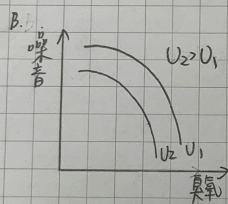 B.
噪音
U₂>U₁
U₂ U₁
臭氧